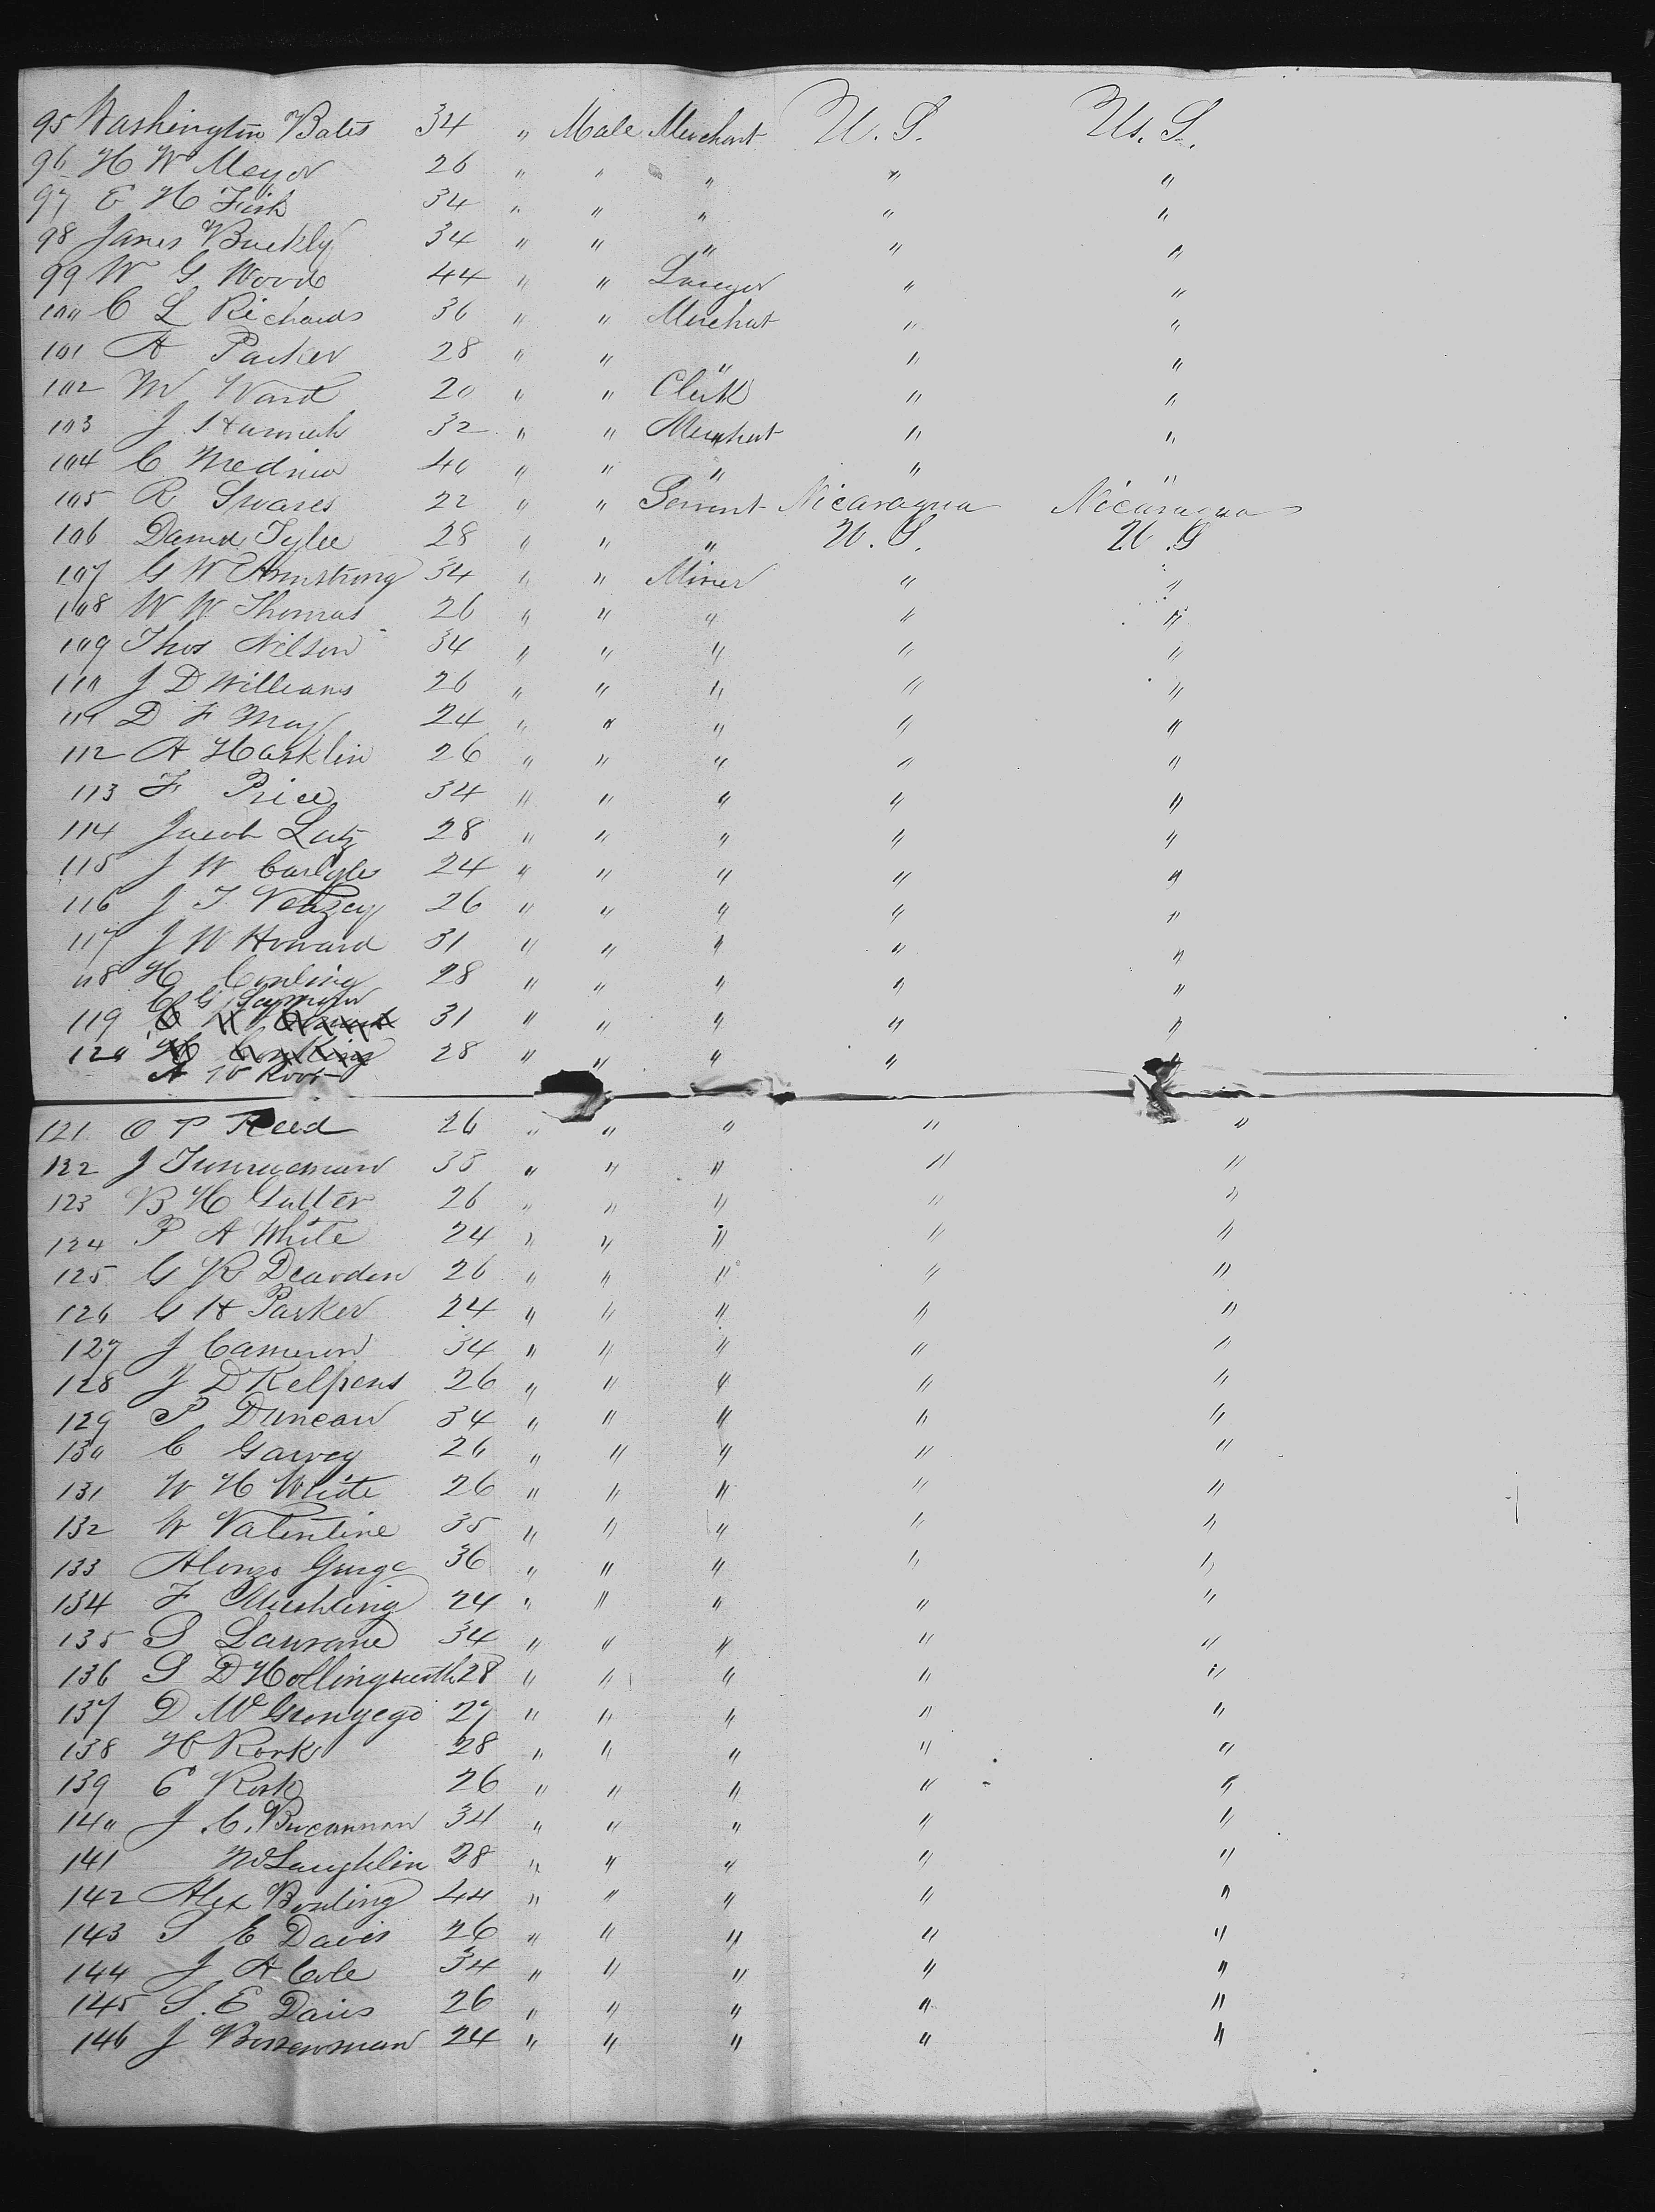 95 Washington Bates 34 " Male Merchant U. S. U. S.
96 H W Meyor 26 " " " " "
97 E H Fish 34 " " " " "
98 James Buckly 34 " " " " "
99 W G Wood 44 " " Lawyer " "
100 C L Richards 36 " " Merchat " "
101 A Parker 28 " " " " "
102 M Ward 20 " " Clerk " "
103 J Hannah 32 " " Merchat " "
104 C Medina 40 " " " " "
105 R Swares 22 " " Servent Nicaragua Nicaragua
106 David Tylee 28 " " " U. S. U. S
107 G W Armstrong 34 " " Miner " "
108 W W Thomas 26 " " " " "
109 Thos Nelson 34 " " " " "
110 J D Williams 26 " " " " "
111 D F May 24 " " " " "
112 A Hasklin 26 " " " " "
113 F Price 34 " " " " "
114 Jacob Lutz 28 " " " " "
115 J W Carlyle 24 " " " " "
116 J T Veazey 26 " " " " "
117 J W Howard 31 " " " " "
118 H Conling 28 " " " " "
C G Saymour
119 31 " " " " "
120 28 " " " " "
A W Root
121 O P Reed 26 " " " " "
122 J 38 " " " " "
123 B H Galler 26 " " " " "
124 P A White 24 " " " " "
125 G R Dearden 26 " " " " "
126 G H Parker 24 " " " " "
127 J Cameron 34 " " " " "
128 J D Kelpens 26 " " " " "
129 P Duncan 34 " " " " "
130 C Garvey 26 " " " " "
131 W H White 26 " " " " "
132 W Valentine 35 " " " " "
133 Alonzo Gurge 36 " " " " "
134 F Mushling 24 " " " " "
135 S Lawrane 34 " " " " "
136 S D Hollingsworth 28 " " " " "
137 D M 27 " " " " "
138 H Rork 28 " " " " "
139 E Rork 26 " " " " "
140 J. C. Bucannan 34 " " " " "
141 McLaughlin 28 " " " " "
142 Alex Bowling 44 " " " " "
143 S E Davis 26 " " " " "
144 J A Cole 34 " " " " "
145 S. E Davis 26 " " " " "
146 J 24 " " " " "